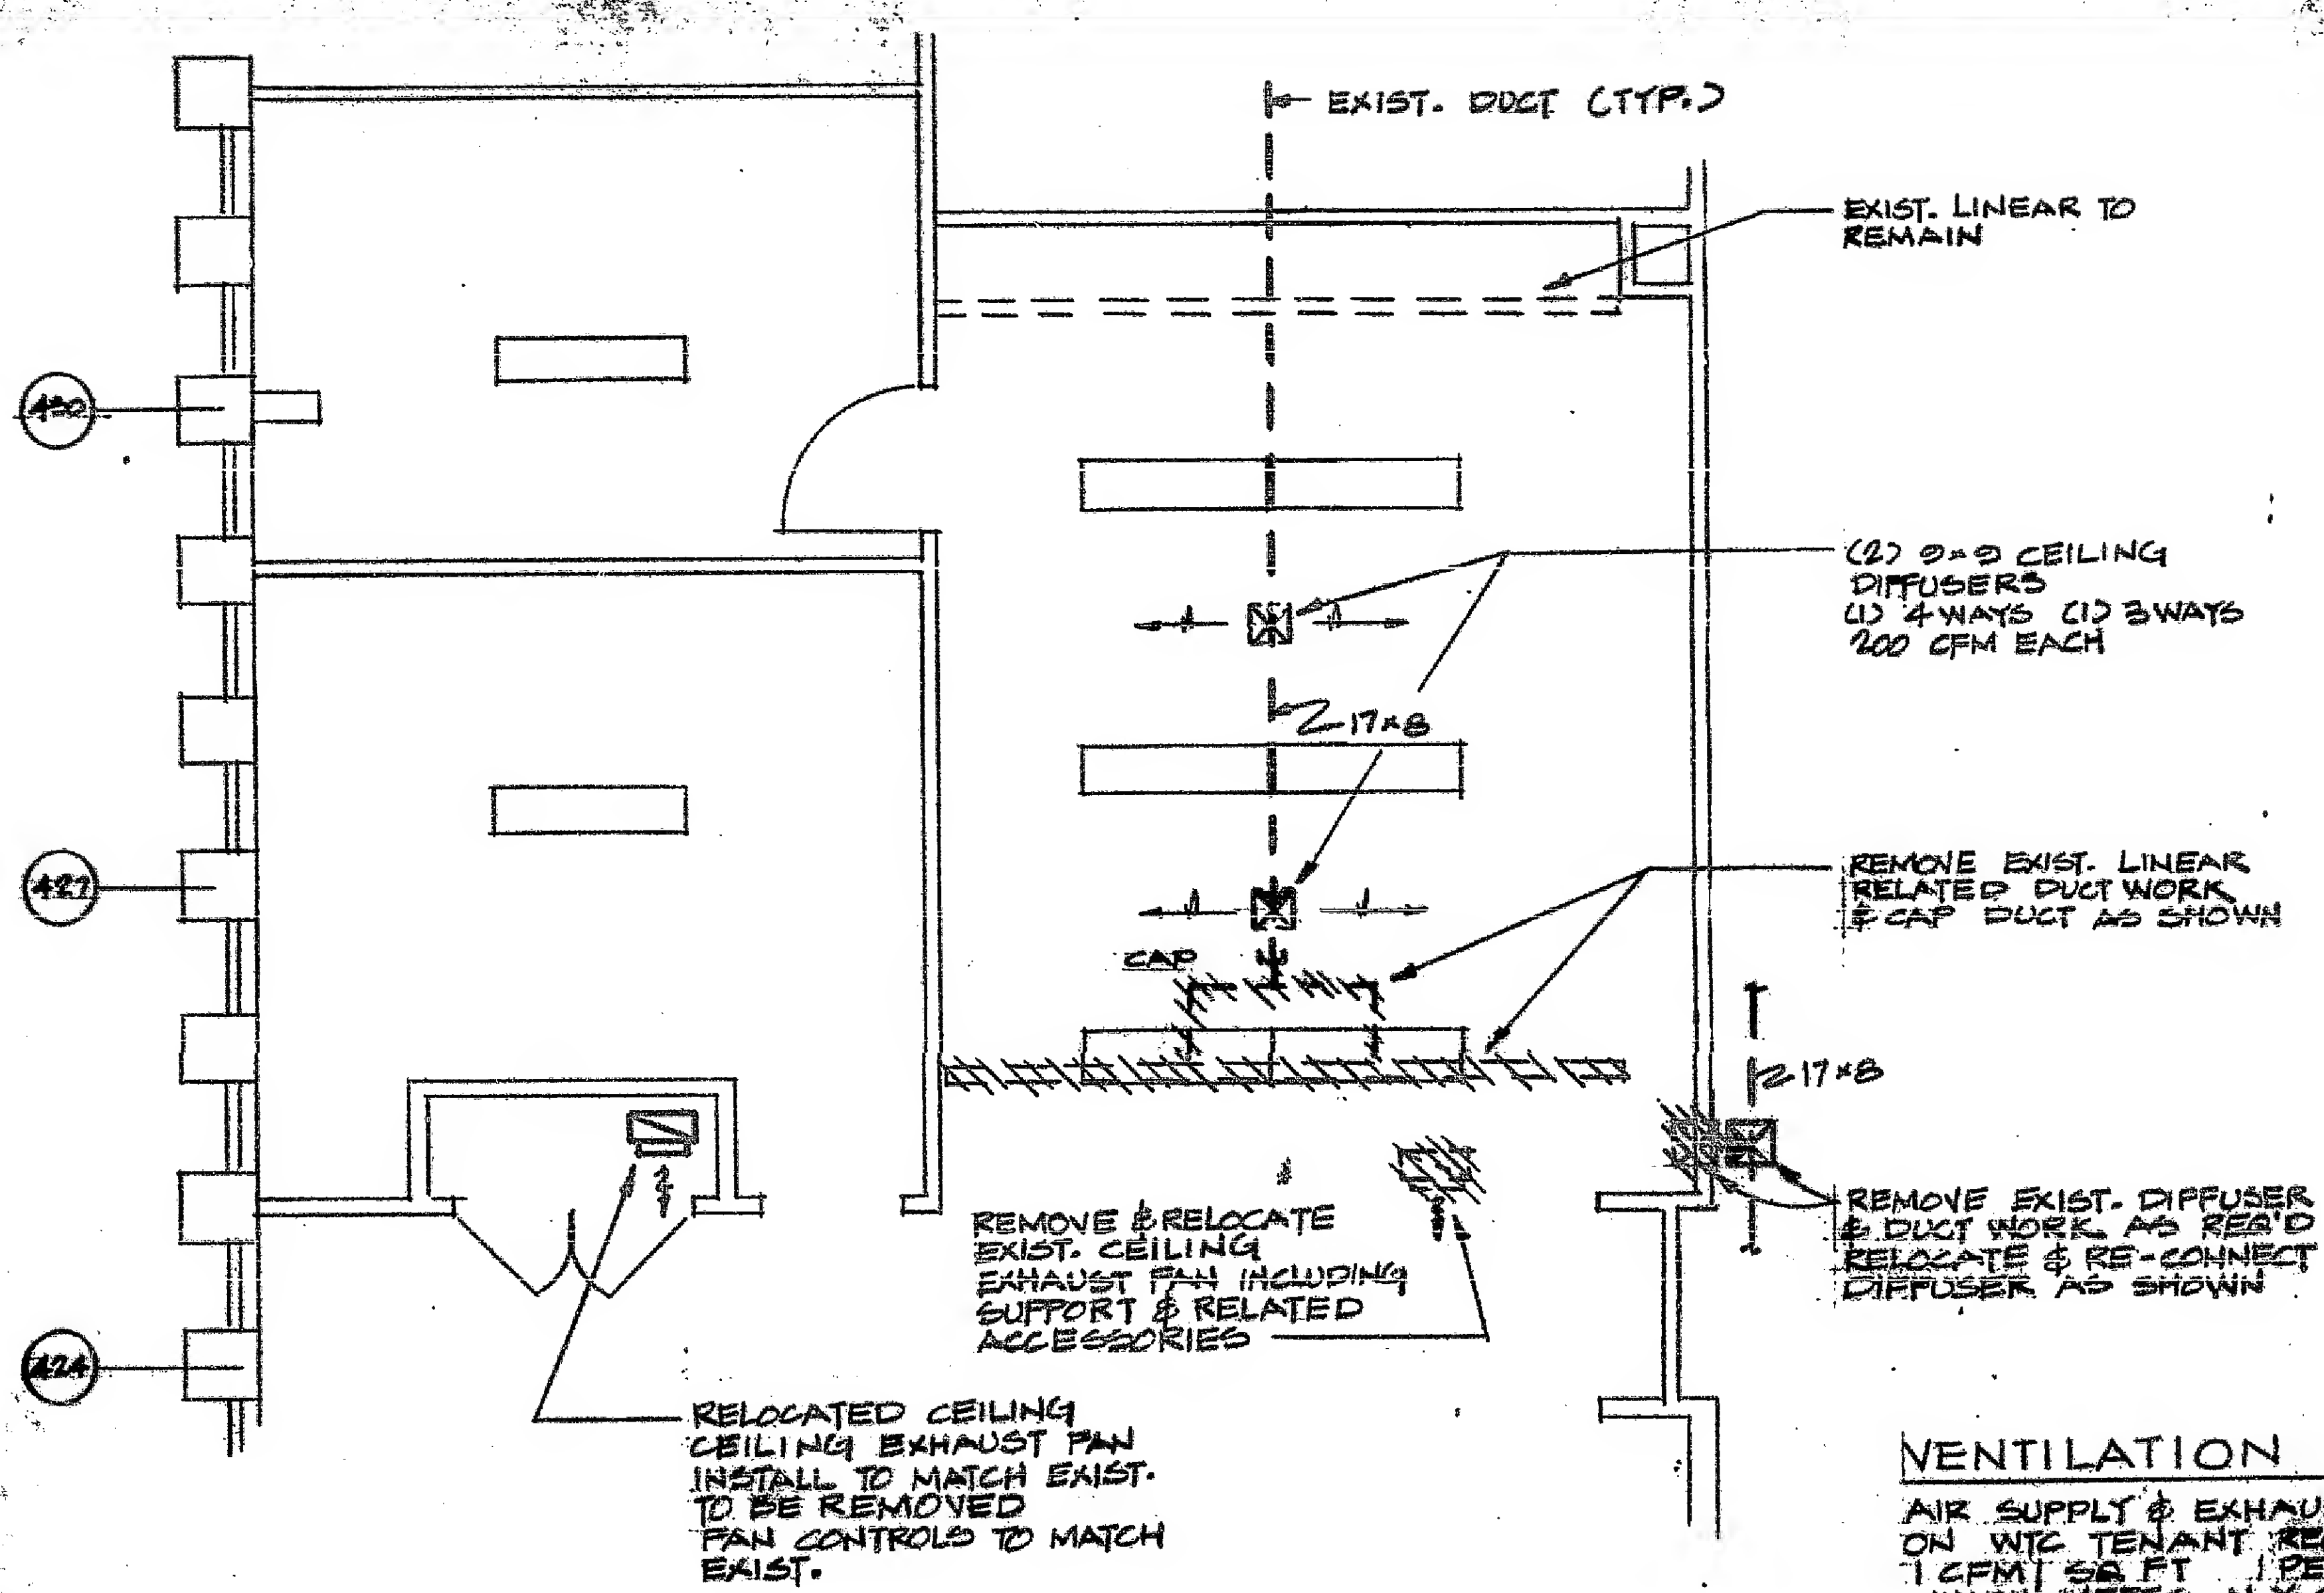 EXIST. DUCT (TYP.)
EXIST. LINEAR TO
REMAIN
430
(2) 9×9 CEILING
DIFFUSERS
(1) 4 WAYS (1) 3 WAYS
200 CFM EACH
17×8
427
REMOVE EXIST. LINEAR
RELATED DUCT WORK
& CAP DUCT AS SHOWN
CAP
17×8
REMOVE & RELOCATE
EXIST. CEILING
EXHAUST FAN INCLUDING
SUPPORT & RELATED
ACCESSORIES
REMOVE EXIST. DIFFUSER
& DUCT WORK AS REQ'D
RELOCATE & RE-CONNECT
DIFFUSER AS SHOWN
424
RELOCATED CEILING
CEILING EXHAUST FAN
INSTALL TO MATCH EXIST.
TO BE REMOVED
FAN CONTROLS TO MATCH
EXIST.
VENTILATION
AIR SUPPLY & EXHAU
ON WTC TENANT RE
1 CFM / SQ FT 1 PE